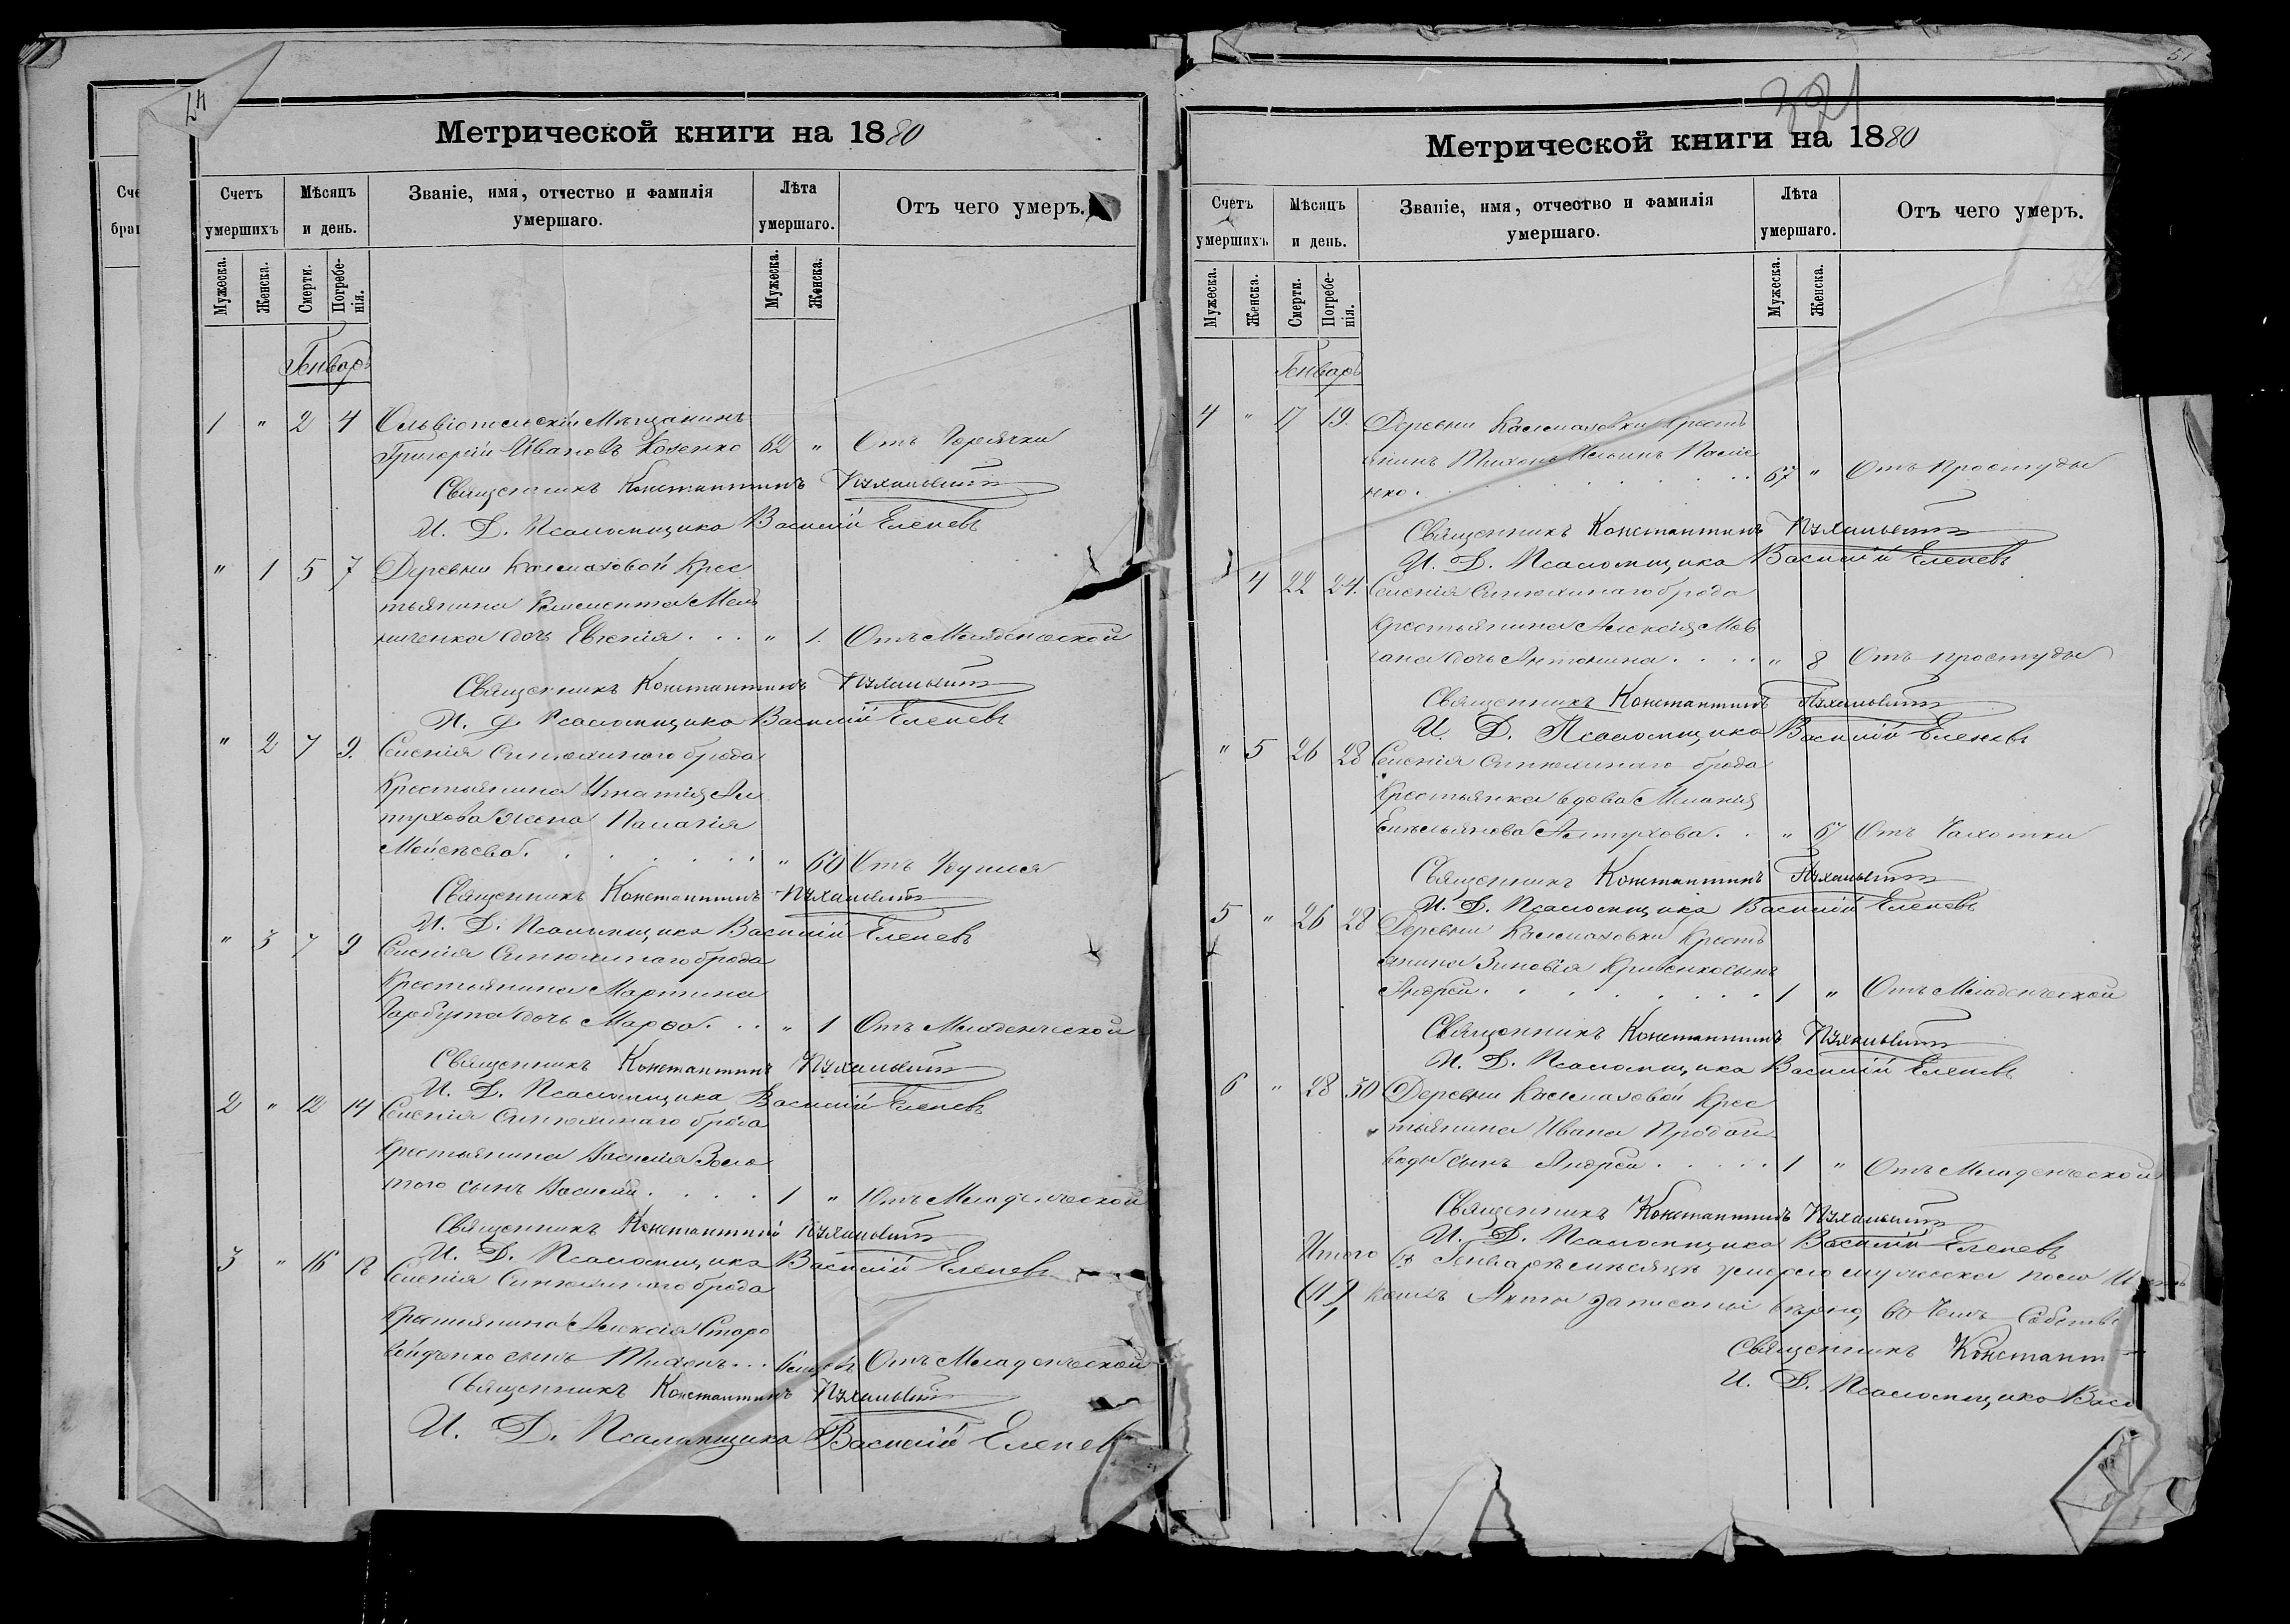 Метрической книги на 1880
Счетъ умершихъ
Мѣсяцъ и день.
Званіе, имя, отчество и фамилія умершаго.
Лѣта умершаго.
Отъ чего умеръ.
Мужеска. Женска. Смерти. Погребенія. Мужеска. Женска.
Генварь
1 " 2 4 Ольвіопольскій Мѣщанинъ
Григорій Ивановъ Козенко 62 " Отъ Горячки
Священникъ Константинъ
И. Д. Псаломщика Василій Еленевъ
" 1 5 7 Деревни Калмазовой Крес
тьянина Климента Мель
ниченка дочь Евгенія . . . " 1. Отъ Младенческой
Священникъ Константинъ
И. д. Псаломщика Василій Еленевъ
" 2 7 9. Селенія Синюхиного брода
Крестьянина Игнатія Ал
тухова жена Палагія
Мойсѣева . . . . . . . " 60 Отъ Удушья
Священникъ Константинъ
И. Д. Псаломщика Василій Еленевъ
" 3 7 9 Селенія Синюхинаго брода
Крестьянина Мартина
Гарбуза дочь Марѳа . . . " 1 Отъ Младенческой
Священникъ Константинъ
И. Д. Псаломщика Василій Еленевъ
2 " 12 14 Селенія Синюхинаго брода
Крестьянина Василія Золо
того сынъ Василій . . . . 1 " Отъ Младенческой
Священникъ Константинъ
И. Д. Псаломщика Василій Еленевъ
3 " 16 18 Селенія Синюхинаго брода
Крестьянина Алексія Старо
войденко сынъ Тихонъ . . . Отъ Младенческой
Священникъ Константинъ
И. Д. Псаломщика Василій Еленевъ
321
51
Метрической книги на 1880
Счетъ умершихъ
Мѣсяцъ и день.
Званіе, имя, отчество и фамилія умершаго.
Лѣта умершаго.
Отъ чего умеръ.
Мужеска. Женска. Смерти. Погребенія. Мужеска. Женска.
Генварь
4 " 17 19. Деревни Калмазовки Кресть
янинъ Тихонъ Ильинъ Палiе
нко . . . . . . . . . 67 " Отъ простуды
Священникъ Константинъ
И. Д. Псаломщика Василій Еленевъ
4 22 24. Селенія Синюхинаго брода
Крестьянина Алексія Мов
чана дочь Антонина . . . . " 8 Отъ простуды
Священникъ Константинъ
И. Д. Псаломщика Василій Еленевъ
" 5 26 28 Селенія Синюхинаго брода
Крестьянка вдова Меланія
Емельянова Алтухова . . " 67 Отъ Чахотки
Священникъ Константинъ
И. Д. Псаломщика Василій Еленевъ
5 " 26 28 Деревни Калмазовки Кресть
янина Зиновія Кривенко сынъ
Андрей . . . . . . . . 1 " Отъ Младенческой
Священникъ Константинъ
И. Д. Псаломщика Василій Еленевъ
6 " 28 30 Деревни Калмазовой Крес
тьянина Ивана Продай
воды сынъ Андрей . . . . . 1 " Отъ Младенческой
Священникъ Константинъ
И. Д. Псаломщика Василій Еленевъ
Итого въ Генварѣ мѣсяцѣ умерло мужеска пола
Акты записаны вѣрно, въ чемъ
Священникъ Константи
И. Д. Псаломщика Васи